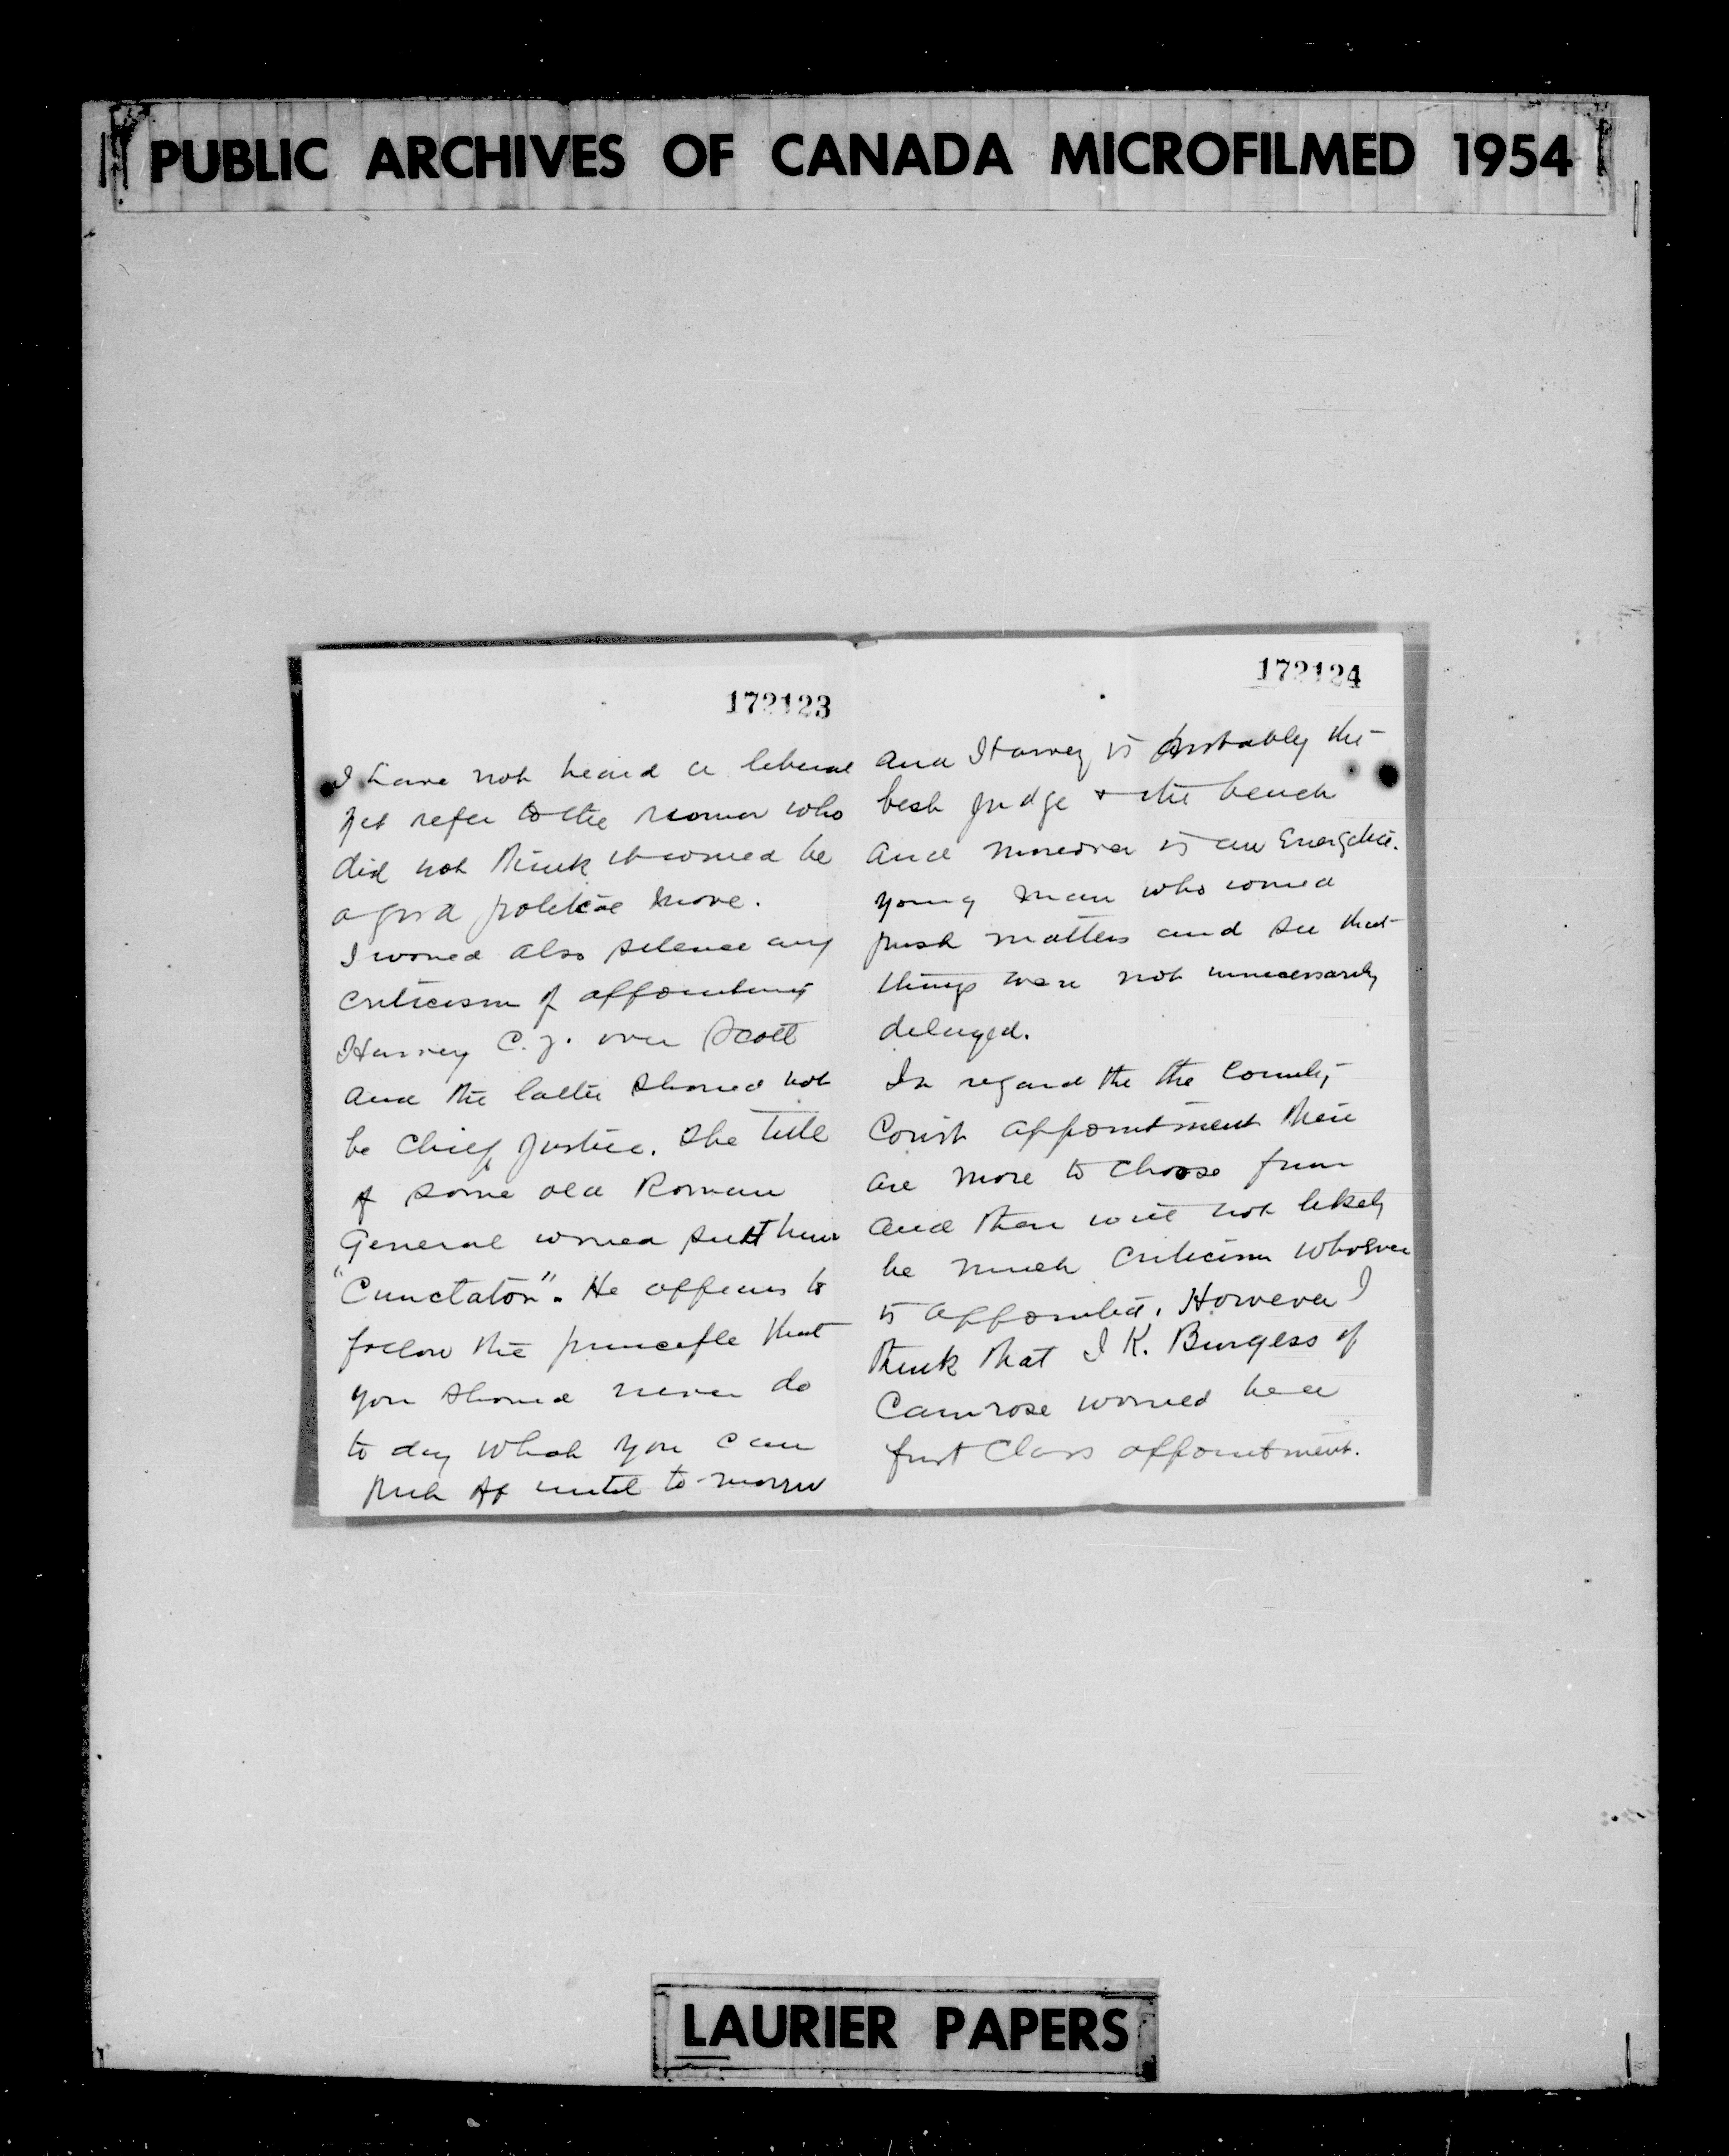 PUBLIC ARCHIVES OF CANADA MICROFILMED 1954
172123
I have not heard a liberal
yet refer to the rumor who
did not think it would be
a good political move.
I would also silence any
criticism of appointing
Harvey C.J. over Scott
and the latter should not
be Chief Justice. The title
of some old Roman
General would suit him
"Cunctator". He appears to
follow the principle that
you should never do
to day which you can
put off until to-morrow
172124
and Harvey is probably the
best judge + the bench
and moreover is an Energetic
young man who would
push matters and see that
things were not unnecessarily
delayed.
In regard the the County
Court appointment there
are more to choose from
and there will not likely
be much criticism whoever
is appointed. However I
think that I K. Burgess of
Camrose would be a
first Class appointment.
LAURIER PAPERS